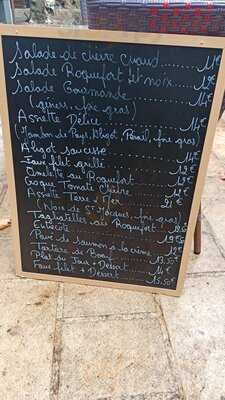 Salade de chèvre chaud......11€
Salade Roquefort et noix......12€
Salade Gourmande......14€
(gésiers, foie gras)
Assiette Délice......14€
(Jambon de Pays, Aligot, foie gras)
Aligot saucisse......14€
Faux filet grillé......15€
Omelette au Roquefort
Croque Tomate Chèvre
Assiette Terre & Mer......21€
(Noix de St Jacques, foie gras)
Tagliatelles au Roquefort
Entrecôte......19€50
Pavé de saumon à la crème
Tartare de Boeuf
Plat du Jour + Dessert......14€
Faux filet + Dessert......15.50€